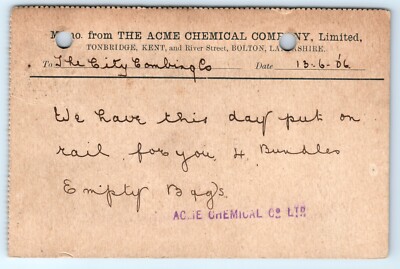 Memo. from THE ACME CHEMICAL COMPANY, Limited,
TONBRIDGE, KENT, and River Street, BOLTON, LANCASHIRE.
To The City Combing Co Date 13-6-06
We have this day put on
rail for you 4 Bundles
Empty Bags.
ACME CHEMICAL CO LTD